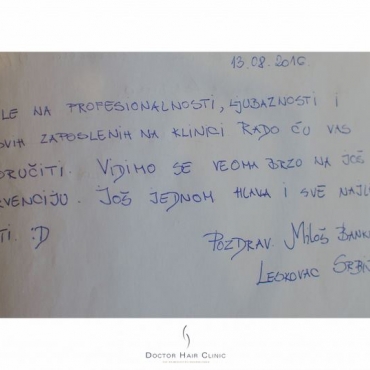 13.08.2016.
LE NA PROFESIONALNOSTI, LJUBAZNOSTI I
SVIH ZAPOSLENIH NA KLINICI RADO ĆU VAS
ORUČITI. VIDIMO SE VEOMA BRZO NA JOŠ
RVENCIJU. JOŠ JEDNOM HVALA I SVE NAJL
TI. :D
POZDRAV. MILOŠ BANK
LESKOVAC SRBI
DOCTOR HAIR CLINIC